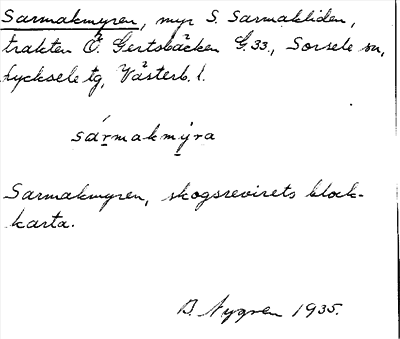 Sarmakmyren, myr S. Sarmakliden,
trakten Ö. Gertsbäcken G.33., Sorsele sn,
Lycksele tg, Västerb. l.
sármakmýra
Sarmakmyren, skogsrevirets block-
karta.
B. Nygren 1935.